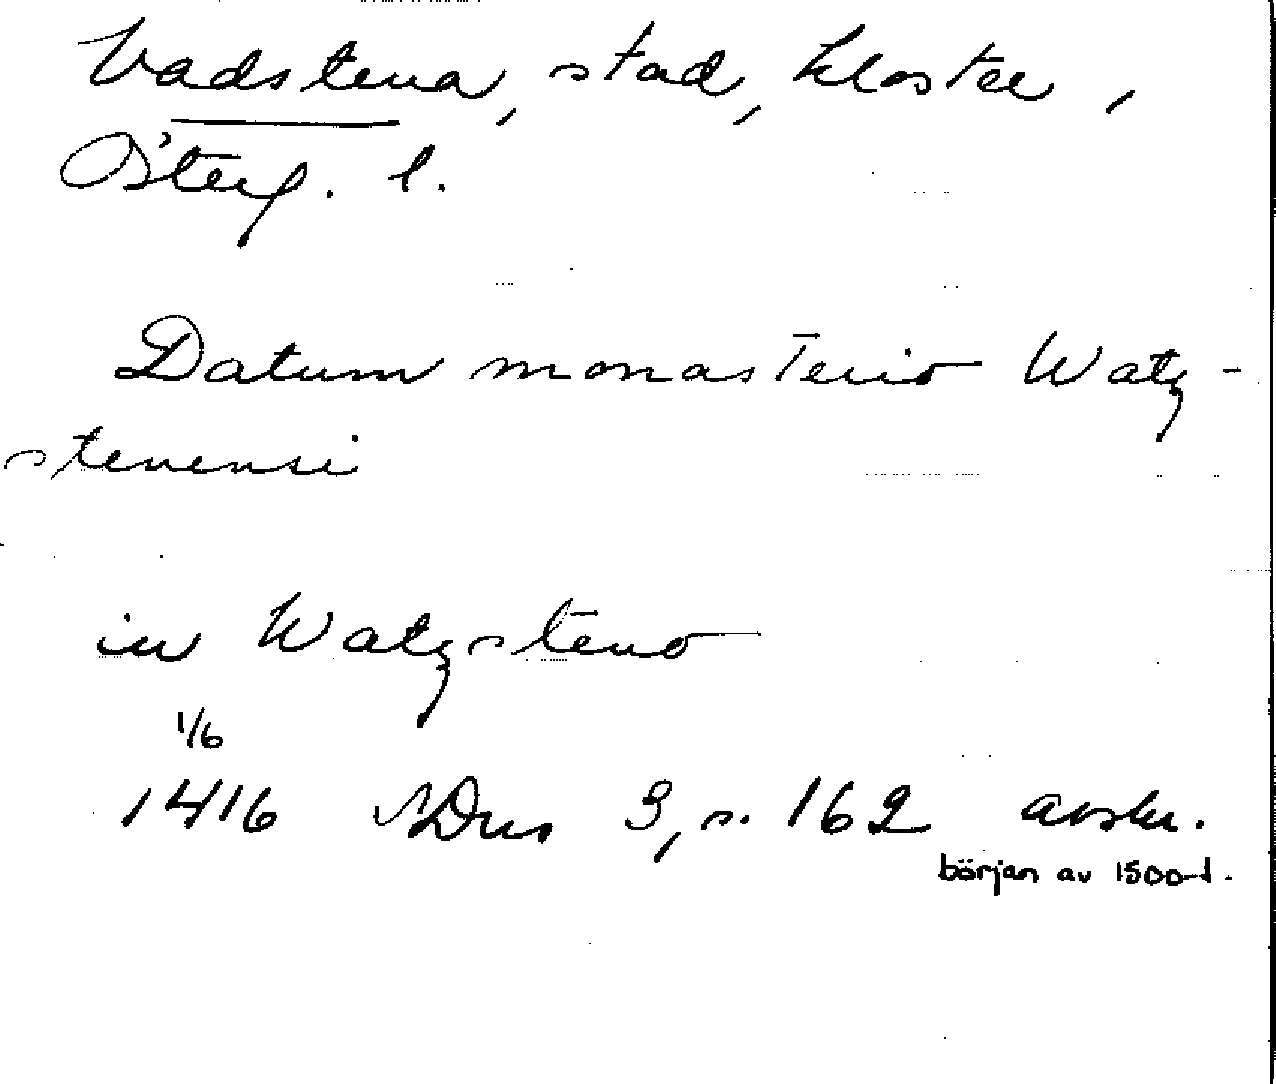 Vadstena, stad, kloster,
Österg. l.
Datum monasterio Watz-
stenensi
in Watzsteno
1/6
1416 SDns 3, s. 162 avskr.
början av 1500-t.